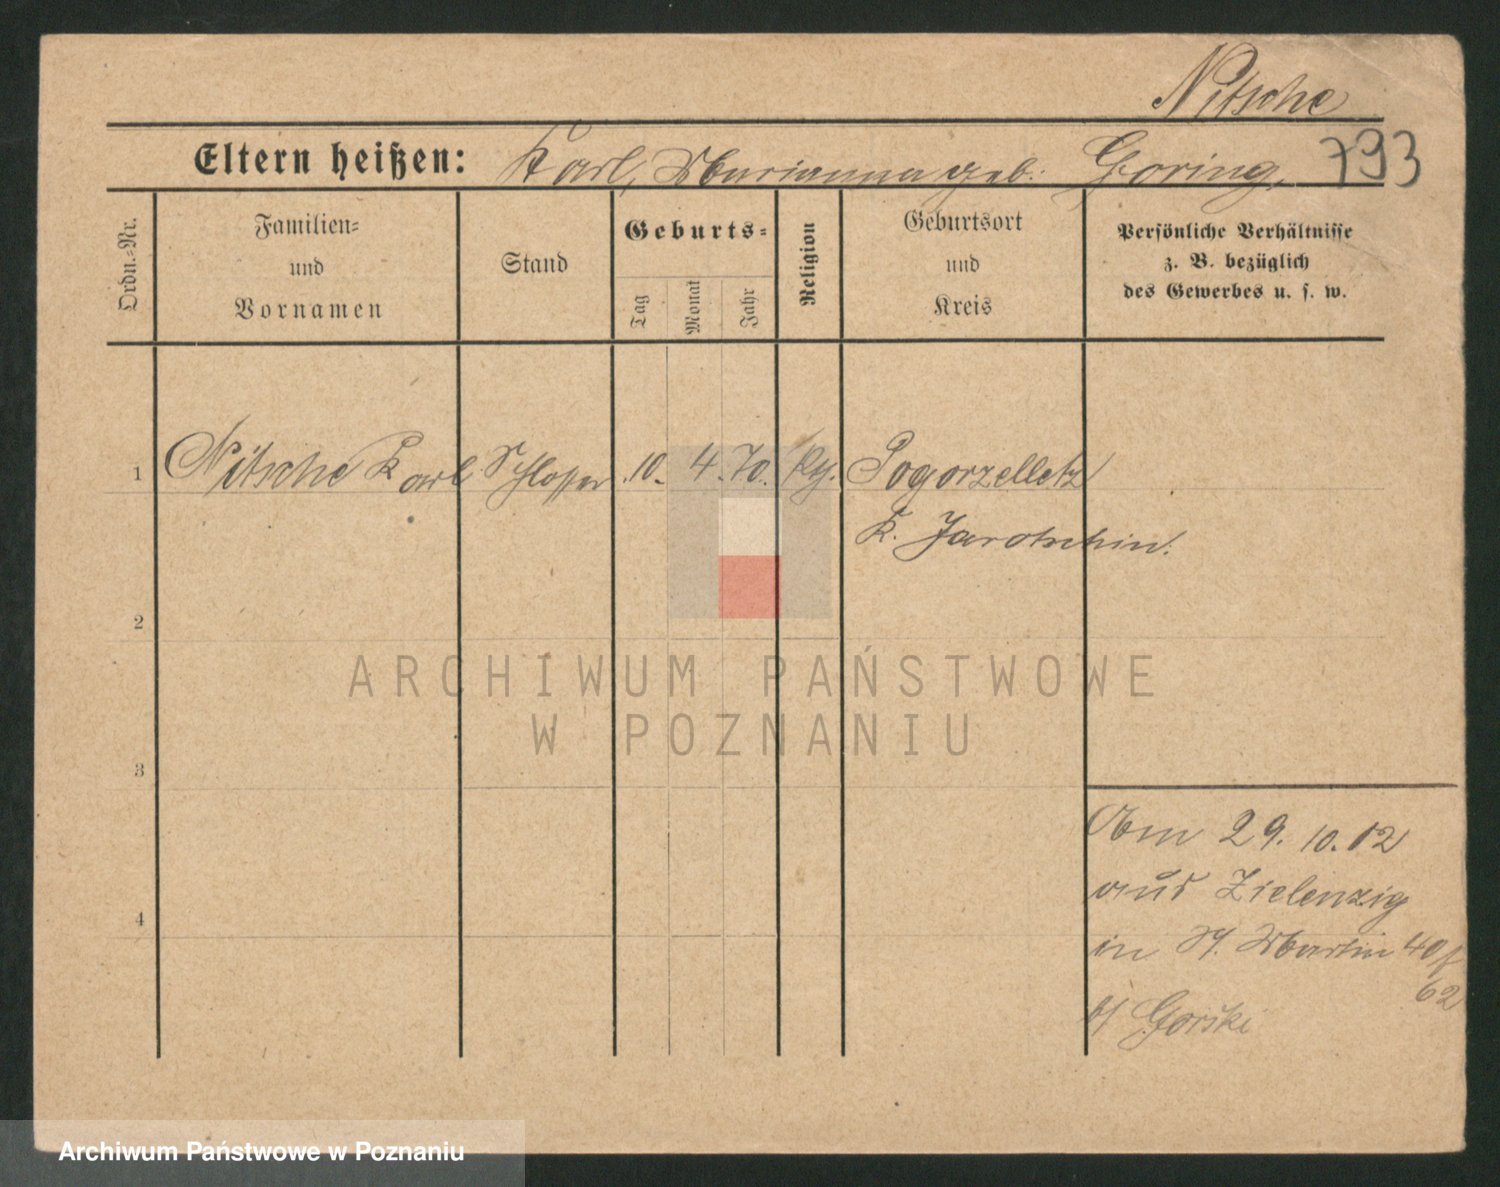 Nitsche
Eltern heißen: Karl, Marianna geb. Goring, 793
Ordn.-Nr.
Familien- und Vornamen
Stand
Geburts-
Tag
Monat
Jahr
Religion
Geburtsort und Kreis
Persönliche Verhältnisse
z. B. bezüglich
des Gewerbes u. s. w.
1 Nitsche Karl Schlosser 10. 4. 70. Pogorzelletz
K. Jarotschin.
2
3
4
Am 29. 10. 02
aus Zielenzig
in St. Martin 40
62
b/ Gorski
ARCHIWUM PAŃSTWOWE
W POZNANIU
Archiwum Państwowe w Poznaniu